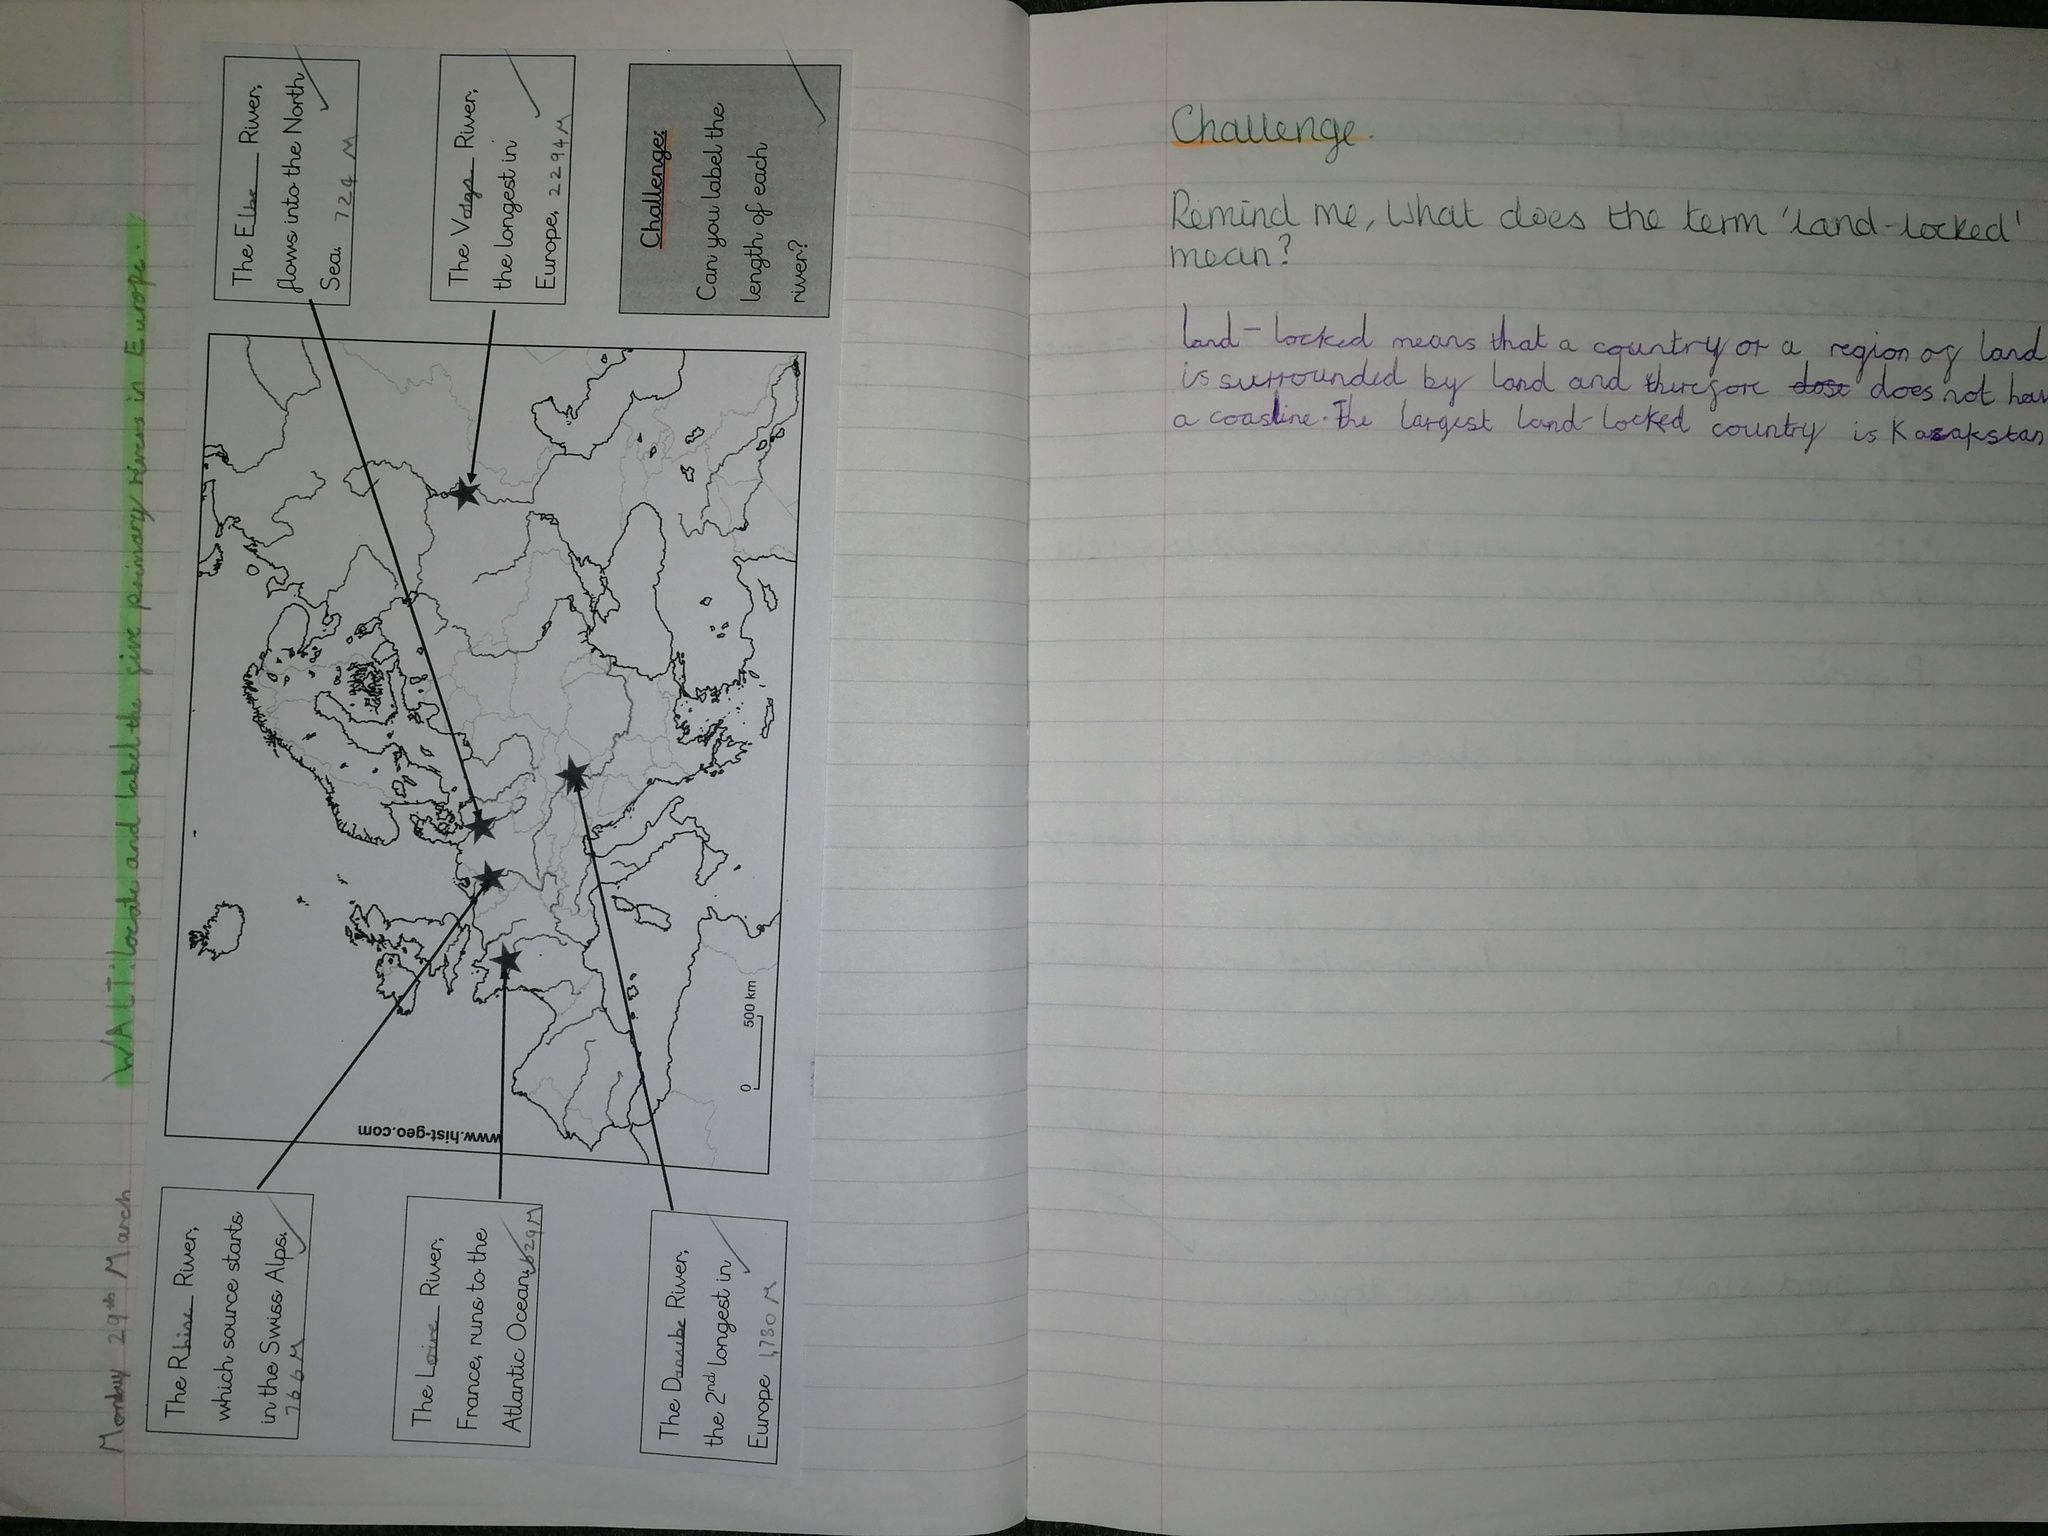 Monday 29th March
WALT: locate and label the five primary rivers in Europe.
The Rhine River,
which source starts
in the Swiss Alps.
766M
The Loire River,
France, runs to the
Atlantic Ocean. 629M
The Danube River,
the 2nd longest in
Europe 1,780 M
www.hist-geo.com
0 500 km
The Elbe River,
flows into the North
Sea. 724 M
The Volga River,
the longest in
Europe, 2294M
Challenge:
Can you label the
length of each
river?
Challenge.
Remind me, What does the term 'land-locked'
mean?
land-locked means that a country or a region of land
is surrounded by land and therefore dose does not hav
a coastline. The largest land-locked country is Kazakstan